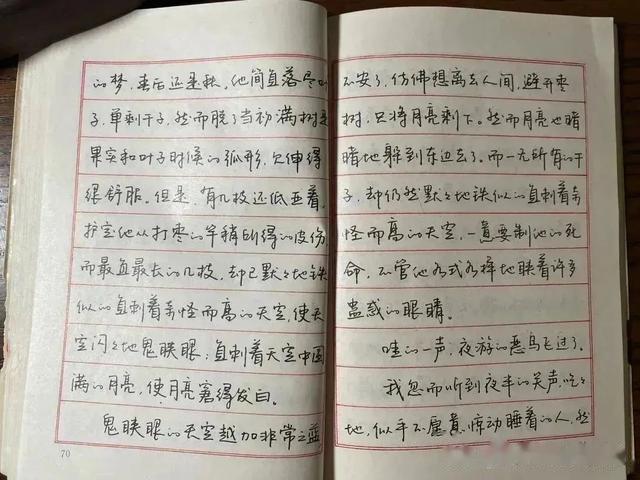 的梦，春后还是秋。他简直落尽叶
子，单剩干子，然而脱了当初满树是
果实和叶子时候的弧形，欠伸得
很舒服。但是，有几枝还低亚着，
护定他从打枣的竿稍所得的皮伤，
而最直最长的几枝，却已默々地铁
似的直刺着奇怪而高的天空，使天
空闪々地鬼䀹眼；直刺着天空中圆
满的月亮，使月亮窘得发白。
鬼䀹眼的天空越加非常之蓝，
70
不安了，仿佛想离去人间，避开枣
树，只将月亮剩下。然而月亮也暗
暗地躲到东边去了。而一无所有的干
子，却仍然默々地铁似的直刺着奇
怪而高的天空，一意要制他的死
命，不管他各式各样地䀹着许多
蛊惑的眼睛。
哇的一声，夜游的恶鸟飞过了。
我忽而听到夜半的笑声，吃々
地，似乎不愿意惊动睡着的人，然